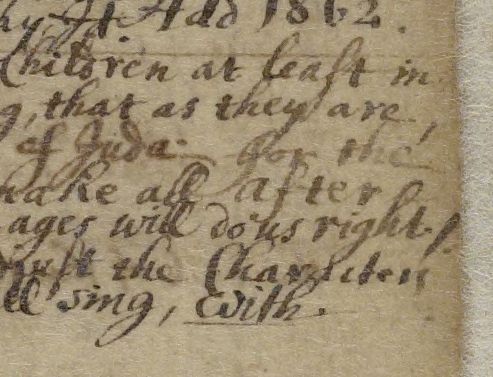 Add 1862.
Children at least in
g, that as they are,
of Juda. for the
make all after
ages will do us right.
trust the Character
ll sing, with.